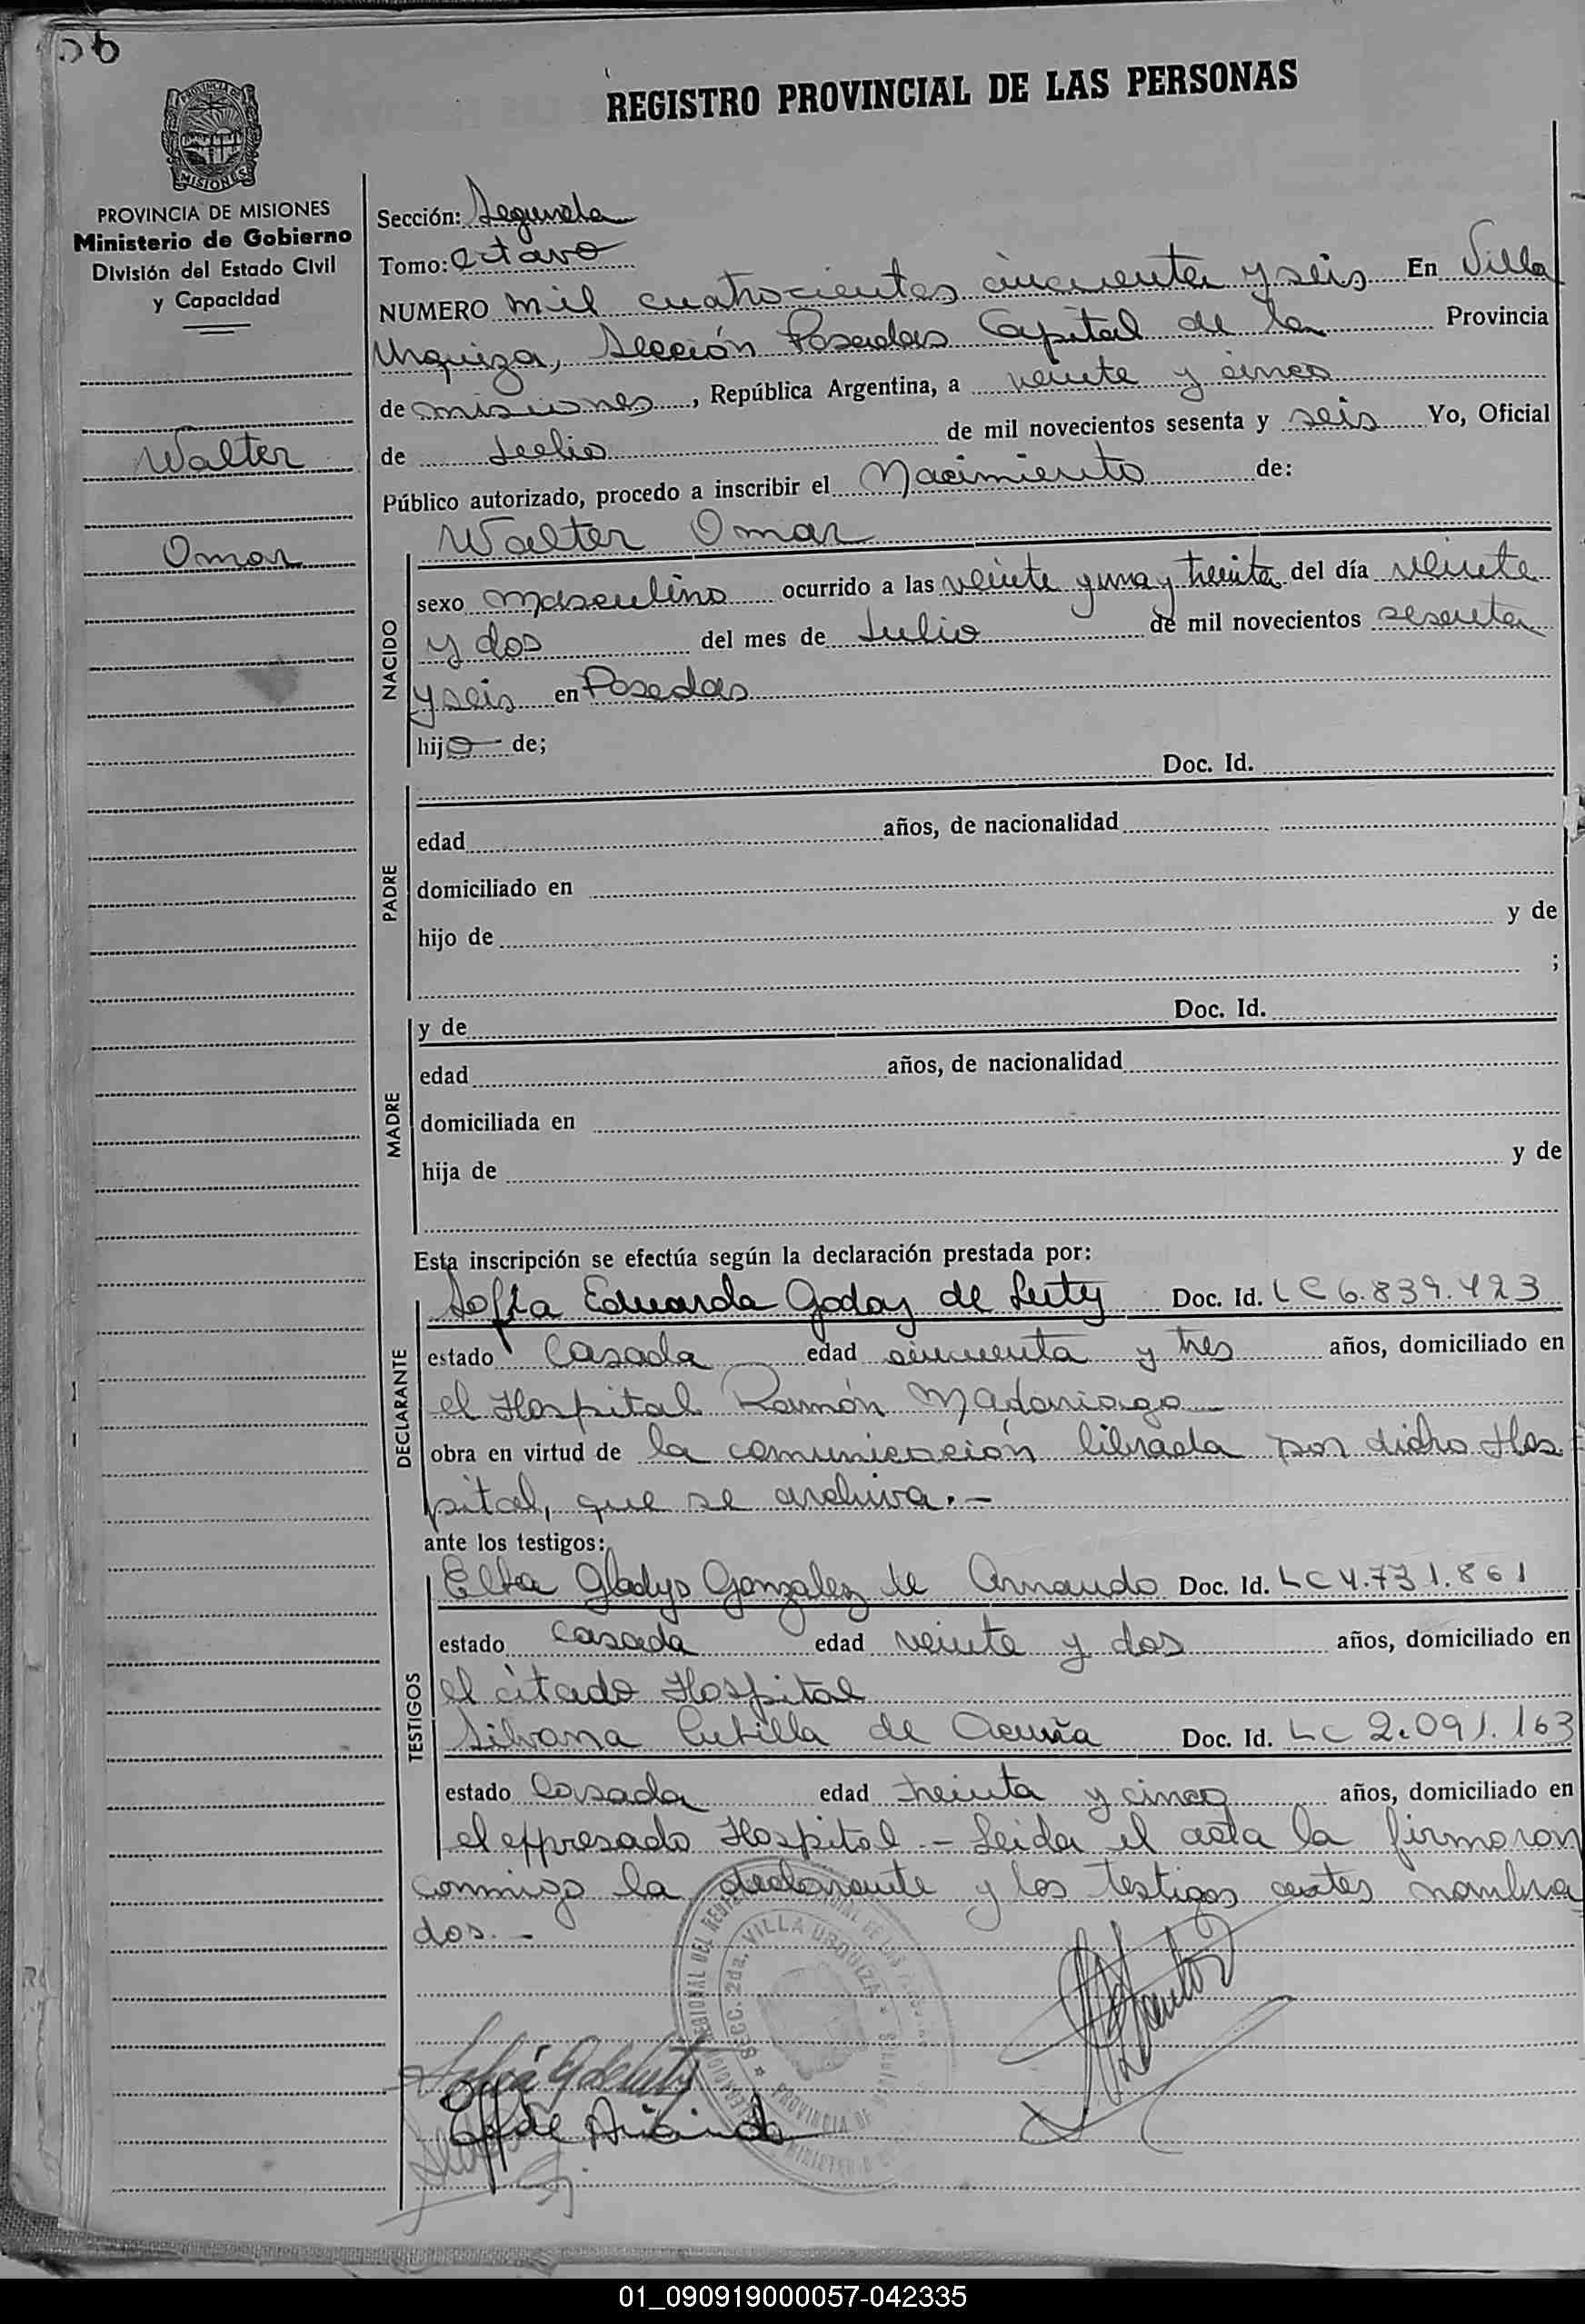 56
REGISTRO PROVINCIAL DE LAS PERSONAS
MISIONES
PROVINCIA DE MISIONES
Ministerio de Gobierno
División del Estado Civil
y Capacidad
Walter
Omar
Sección: Segunda
Tomo: Octavo
NUMERO mil cuatrocientos cincuenta y seis En Villa
Urquiza, Sección Posadas Capital de la Provincia
de misiones, República Argentina, a veinte y cinco
de Julio de mil novecientos sesenta y seis Yo, Oficial
Público autorizado, procedo a inscribir el Nacimiento de:
Walter Omar
NACIDO
sexo masculino ocurrido a las veinte y una y treinta del día veinte
y dos del mes de Julio de mil novecientos sesenta
y seis en Posadas
hijo de;
PADRE
Doc. Id.
edad años, de nacionalidad
domiciliado en
hijo de y de
;
MADRE
y de Doc. Id.
edad años, de nacionalidad
domiciliada en
hija de y de
Esta inscripción se efectúa según la declaración prestada por:
DECLARANTE
Sofía Eduarda Godoy de Leity Doc. Id. LC 6.839.423
estado Casada edad cincuenta y tres años, domiciliado en
el Hospital Ramón Madariaga
obra en virtud de la comunicación librada por dicho Hos
pital, que se archiva.-
ante los testigos:
TESTIGOS
Elba Gladys Gonzalez de Armando Doc. Id. LC 4.731.861
estado casada edad veinte y dos años, domiciliado en
el citado Hospital
Silvana de Acuña Doc. Id. LC 2.091.163
estado Casada edad treinta y cinco años, domiciliado en
el expresado Hospital.- Leida el acta la firmaron
conmigo la declarante y los testigos antes nombra
dos.-
SECC. 2da. VILLA URQUIZA
PROVINCIA DE
01_090919000057-042335